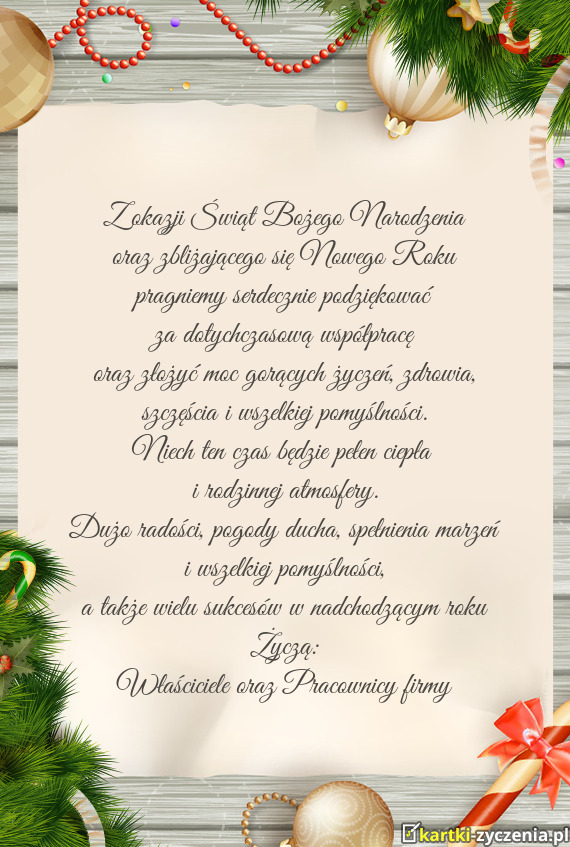 Zokazji Świąt Bożego Narodzenia
oraz zbliżającego się Nowego Roku
pragniemy serdecznie podziękować
za dotychczasową współpracę
oraz złożyć moc gorących życzeń, zdrowia,
szczęścia i wszelkiej pomyślności.
Niech ten czas będzie pełen ciepła
i rodzinnej atmosfery.
Dużo radości, pogody ducha, spełnienia marzeń
i wszelkiej pomyślności,
a także wielu sukcesów w nadchodzącym roku
Życzą:
Właściciele oraz Pracownicy firmy
kartki-zyczenia.pl